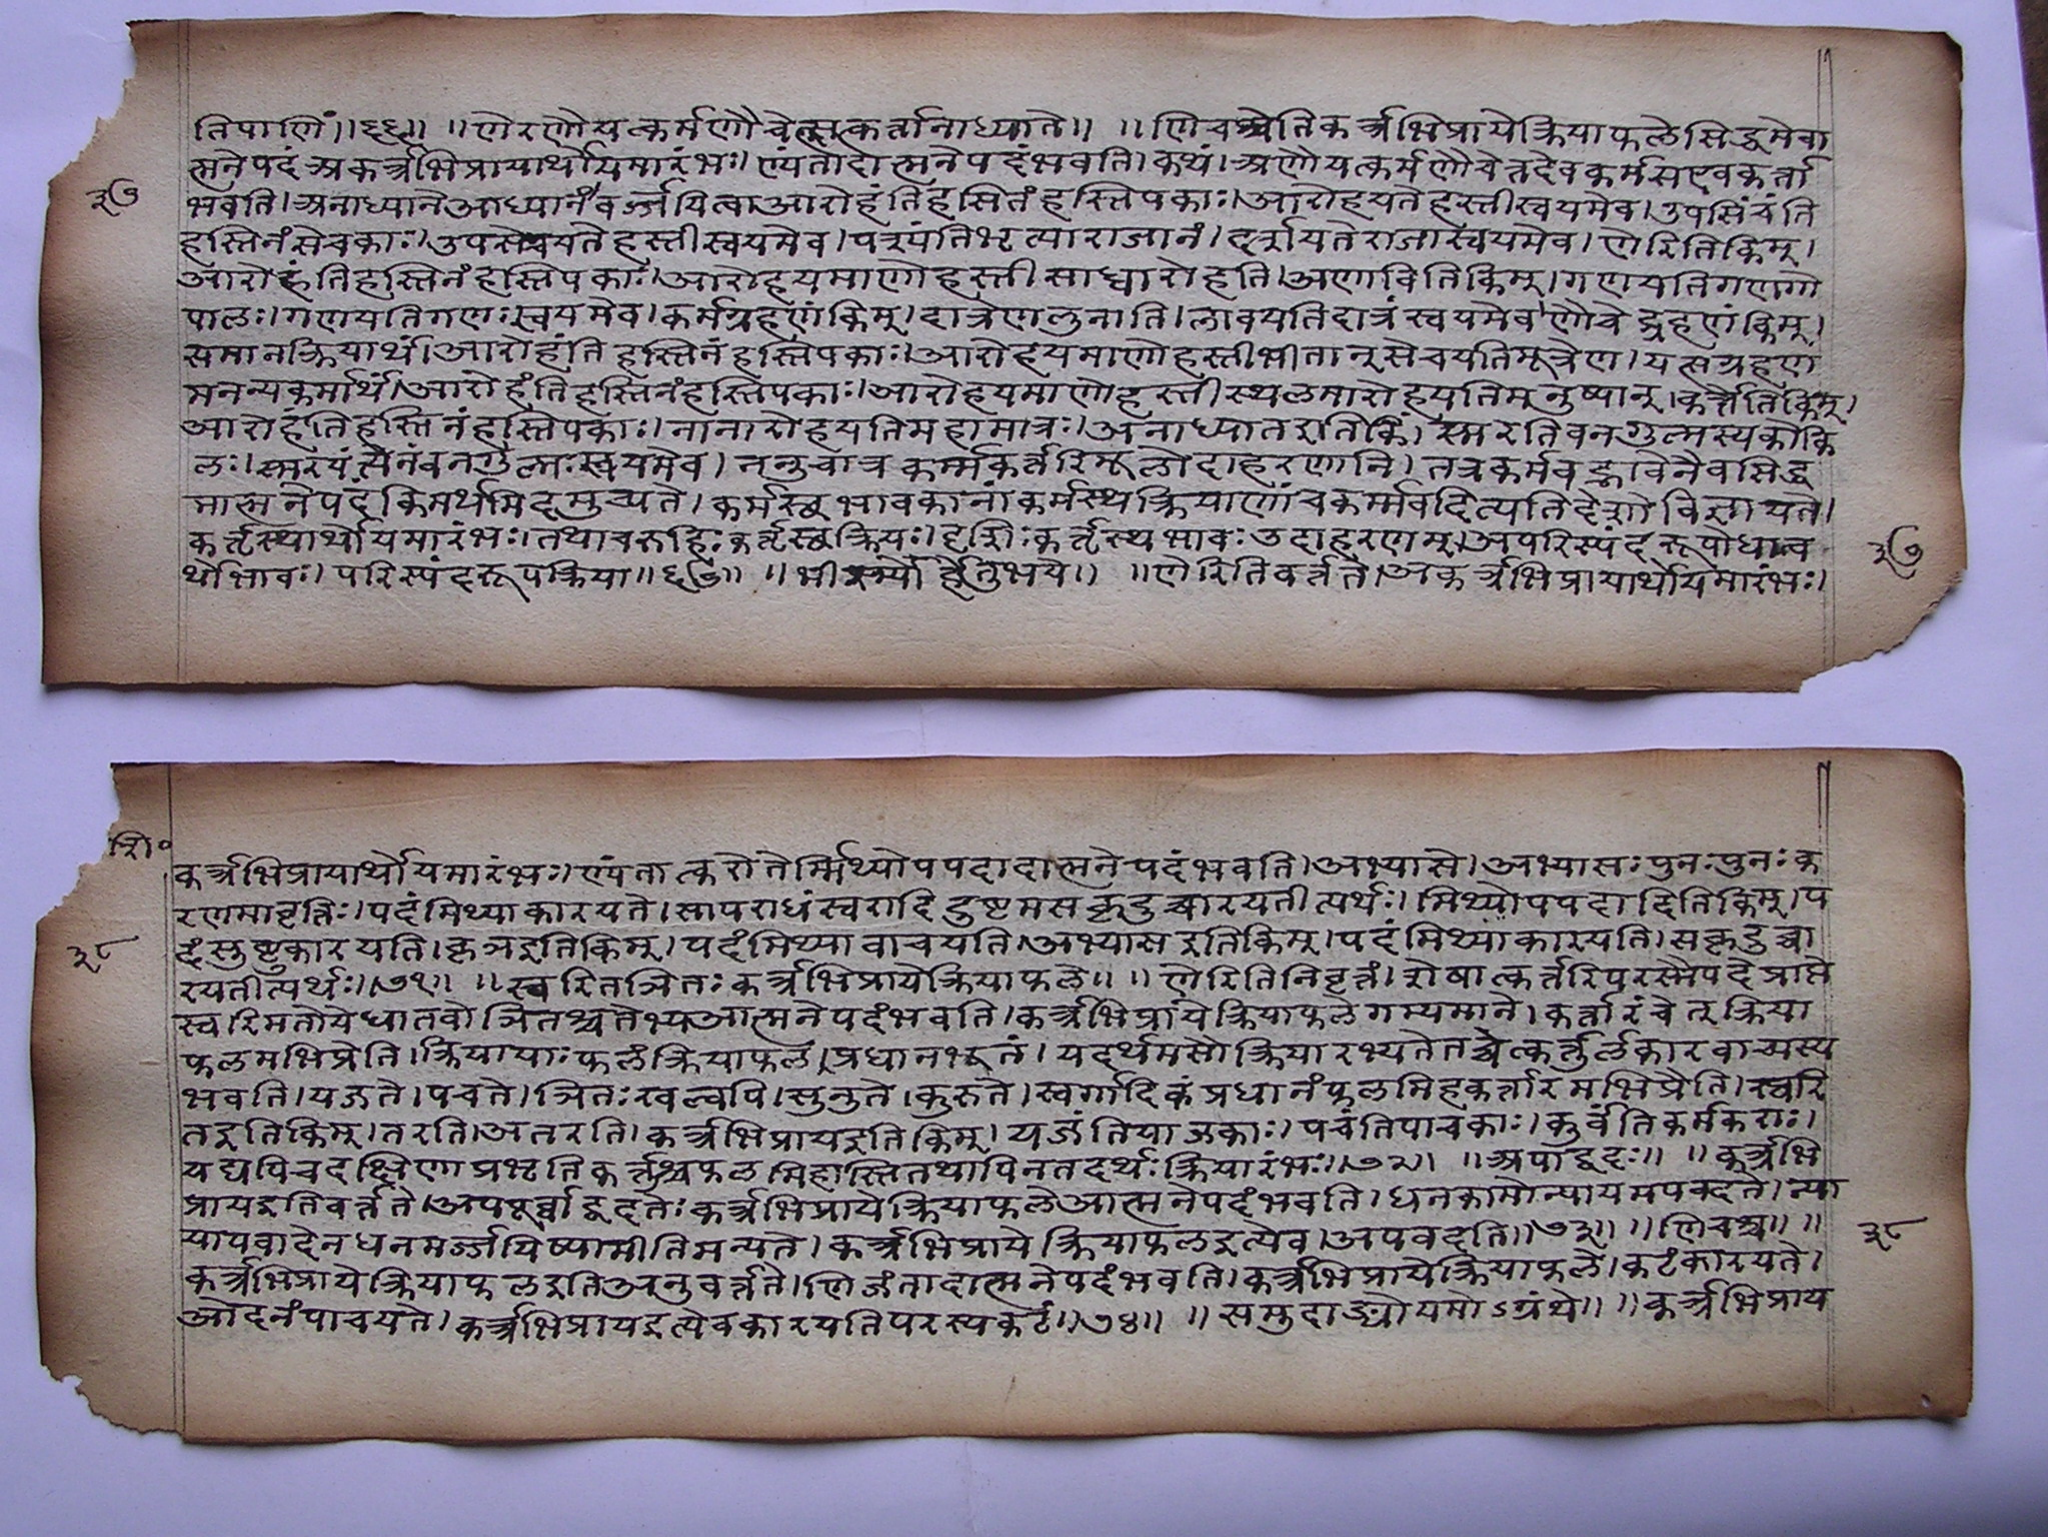 तिपाणिं॥६६॥ ॥णेरणौयत्कर्मणौचेत्सकर्तानाध्याने॥ ॥णिचश्चेतिकर्त्रभिप्रायेक्रियाफलेसिद्धमेवा
त्मनेपदं अकर्त्रभिप्रायार्थोयमारंभः। ण्यंतादात्मनेपदंभवति। कथं। अणौयत्कर्मणौचेतदेवकर्मसएवकर्ता
३७
भवति। अनाध्यानेआध्यानंवर्ज्जयित्वाआरोहंतिहस्तिनंहस्तिपकाः। आरोहयतेहस्तीस्वयमेव। उपसिंचंति
हस्तिनंसेचकाः। उपसेचयतेहस्तीस्वयमेव। पश्यंतिभृत्याराजानं। दर्शयतेराजास्वयमेव। णेरितिकिम्।
आरोहंतिहस्तिनंहस्तिपकाः। आरोहयमाणोहस्तीसाध्वारोहति। अणावितिकिम्। गणयतिगणंगो
पालः। गणयतिगणःस्वयमेव। कर्मग्रहणंकिम्। दात्रेणलुनाति। लावयतिदात्रंस्वयमेव। णौचेद्ग्रहणंकिम्।
समानक्रियार्थं। आरोहंतिहस्तिनंहस्तिपकाः। आरोहयमाणोहस्तीभीतान्सेचयतिमूत्रेण। यत्सग्रहण
मनन्यकर्मार्थं। आरोहंतिहस्तिनंहस्तिपकाः। आरोहयमाणोहस्तीस्थलमारोहयतिमनुष्यान्। कर्त्तेतिकिम्।
आरोहंतिहस्तिनंहस्तिपकाः। तानारोहयतिमहामात्रः। अनाध्यानइतिकिं। स्मरतिवनगुल्मस्यकोकि
लः। स्मरयत्येनंवनगुल्मःस्वयमेव। ननुचात्रकर्म्मकर्त्तरिमूलोदाहरणानि। तत्रकर्मवद्भावेनैवसिद्ध
मात्मनेपदंकिमर्थमिदमुच्यते। कर्मस्थभावकानांकर्मस्थक्रियाणांचकर्म्मवदित्यतिदेशोविज्ञायते।
कर्तृस्थार्थोयमारंभः। तथाचरुहिःकर्तृस्थक्रियः। दृशिःकर्तृस्थभावःउदाहरणम्। अपरिस्पंदरूपोधात्व
३७
र्थोभावः। परिस्पंदरूपक्रिया॥६७॥ ॥भीस्म्योर्हेतुभये॥ ॥णेरितिवर्त्तते। अकर्त्रभिप्रायार्थोयमारंभः।
शि॰
कर्त्रभिप्रायार्थोयमारंभः। ण्यंतात्करोतेर्म्मिथ्योपपदादात्मनेपदंभवति। अभ्यासे। अभ्यासःपुनःपुनःक
रणमावृत्तिः। पदंमिथ्याकारयते। सापराधंस्वरादिदुष्टमसकृदुच्चारयतीत्यर्थः। मिथ्योपपदादितिकिम्। प
३८
दंसुष्टुकारयति। कृञइतिकिम्। पदंमिथ्यावाचयति। अभ्यासइतिकिम्। पदंमिथ्याकारयति। सकृदुच्चा
रयतीत्यर्थः॥७१॥ ॥स्वरितञितःकर्त्रभिप्रायेक्रियाफले॥ ॥णेरितिनिवृत्तं। शेषात्कर्त्तरिपरस्मैपदेप्राप्ते
स्वरिमतोयेधातवोञितश्चतेभ्यआत्मनेपदंभवति। कर्त्रभिप्रायेक्रियाफलेगम्यमाने। कर्त्तारंचेत्क्रिया
फलमभिप्रेति। क्रियायाःफलंक्रियाफलं। प्रधानभूतं। यदर्थमसौक्रियारभ्यतेतच्चेत्कर्त्तुर्लकारवाच्यस्य
भवति। यजते। पचते। ञितःखल्वपि। सुनुते। कुरुते। स्वर्गादिकंप्रधानंफलमिहकर्त्तारमभिप्रैति। स्वरि
तइतिकिम्। तरति। अतरति। कर्त्रभिप्रायइतिकिम्। यजंतियाजकाः। पचंतिपाचकाः। कुर्वंतिकर्मकराः।
यद्यपिचदक्षिणाप्रभृतिकर्तुश्चफलमिहास्तितथापिनतदर्थःक्रियारंभः॥७२॥ ॥अपाद्वदः॥ ॥कर्त्रभि
प्रायइतिवर्त्तते। अपपूर्व्वाद्वदतेःकर्त्रभिप्रायेक्रियाफलेआत्मनेपदंभवति। धनकामोन्यायमपवदते। न्या
यापवादेनधनमर्ज्जयिष्यामीतिमन्यते। कर्त्रभिप्रायेक्रियाफलइत्येव। अपवदति॥७३॥ ॥णिचश्च॥ ॥
३८
कर्त्रभिप्रायेक्रियाफलइतिअनुवर्त्तते। णिजंतादात्मनेपदंभवति। कर्त्रभिप्रायेक्रियाफले। कटंकारयते।
ओदनंपाचयते। कर्त्रभिप्रायइत्येवकारयतिपरस्यकटं॥७४॥ ॥समुदाङ्भ्योयमोऽग्रंथे॥ ॥कर्त्रभिप्राय